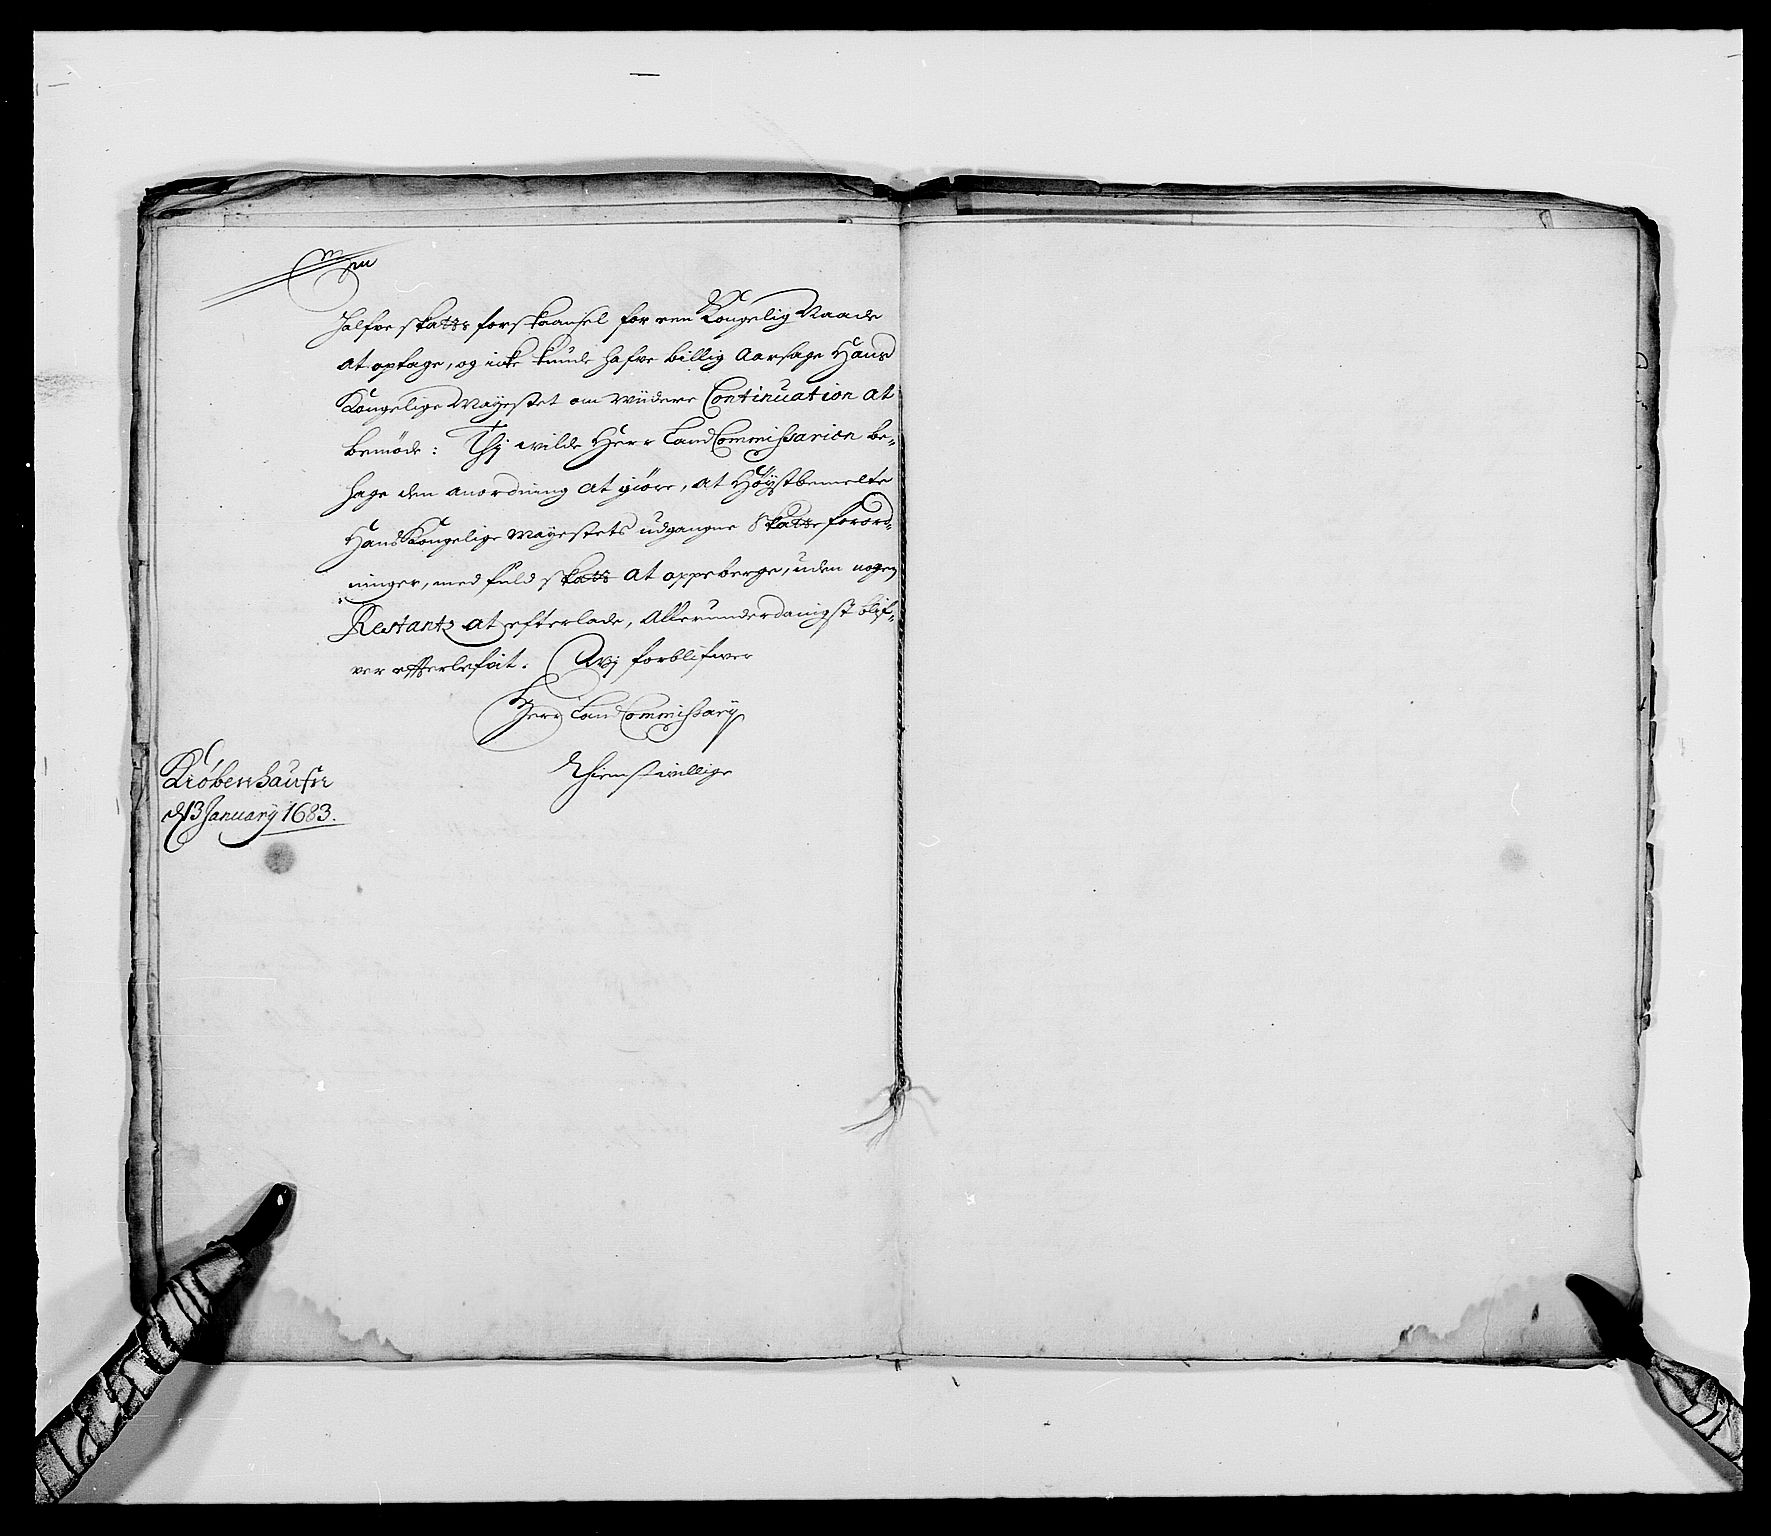 halfve skatts forskaansel for een Kongelig Naade
at optage, og icke kunde hafve billig Aarsage Hans
Kongelige Mayestet om widere Continuation at
bemøde: Thj wilde Herr LandCommissarien be-
hage den anordning at giøre, at Høystbemelte
Hans Kongelige Mayestets udgangne Skatte forord-
ninger, med fuld skatt at oppeberge, uden nogen
Restants at efterlade, Allerunderdanigst blif-
ver efterlefvit. Wj forblifver
Herr Land Commissarij
Thienstwillige
Kiøbenhaufn
d 13 January 1683.